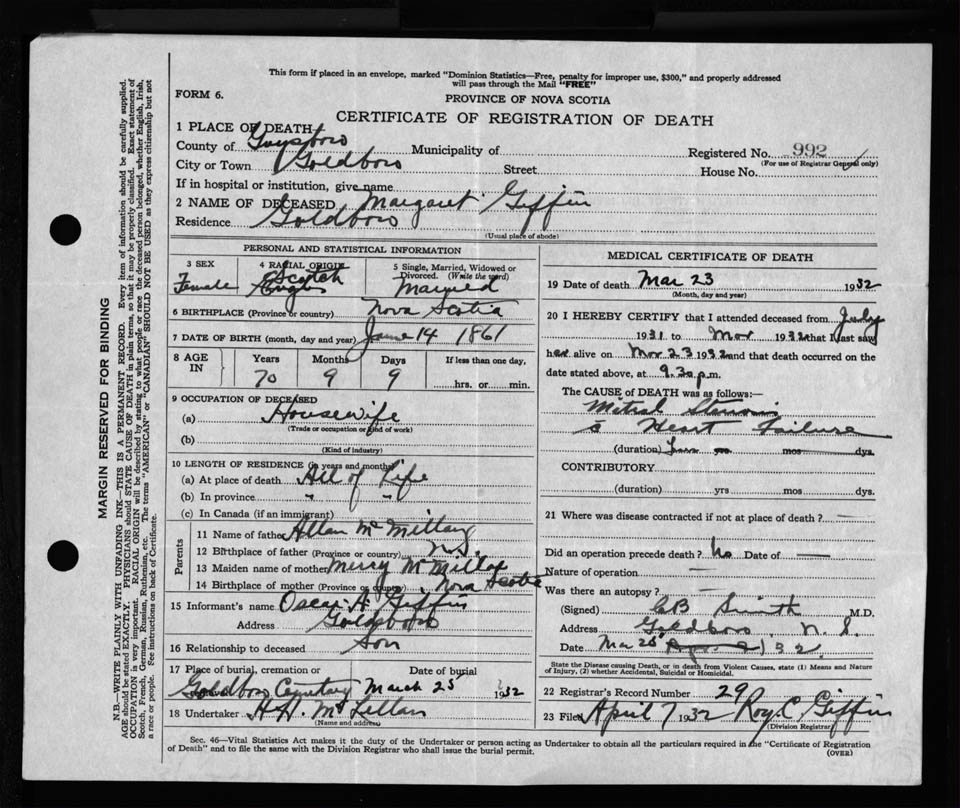 This form if placed in an envelope, marked "Dominion Statistics—Free, penalty for improper use, $300," and properly addressed
will pass through the Mail "FREE"
FORM 6.
PROVINCE OF NOVA SCOTIA
CERTIFICATE OF REGISTRATION OF DEATH
1 PLACE OF DEATH
County of Guysboro Municipality of Registered No. 992
(For use of Registrar General only)
City or Town Goldboro Street House No.
If in hospital or institution, give name
2 NAME OF DECEASED Margaret Giffin
Residence Goldboro
(Usual place of abode)
PERSONAL AND STATISTICAL INFORMATION
3 SEX 4 RACIAL ORIGIN 5 Single, Married, Widowed or
Divorced. (Write the word)
Female Scotch Married
6 BIRTHPLACE (Province or country) Nova Scotia
7 DATE OF BIRTH (month, day and year) June 14 1861
8 AGE IN Years Months Days If less than one day,
70 9 9 hrs. or min.
9 OCCUPATION OF DECEASED
(a) Housewife
(Trade or occupation or kind of work)
(b)
(Kind of industry)
10 LENGTH OF RESIDENCE (in years and months)
(a) At place of death All of Life
(b) In province " "
(c) In Canada (if an immigrant)
Parents
11 Name of father Allan McMillan
12 Birthplace of father (Province or country) N.S.
13 Maiden name of mother Mercy McMillan
14 Birthplace of mother (Province or country) Nova Scotia
15 Informant's name Oscar A. Giffin
Address Goldboro
16 Relationship to deceased Son
17 Place of burial, cremation or Date of burial
Goldboro Cemetary March 25 1932
18 Undertaker McLellan
(Name and address)
MEDICAL CERTIFICATE OF DEATH
19 Date of death Mar 23 1932
(Month, day and year)
20 I HEREBY CERTIFY that I attended deceased from July
1931 to Mar 1932 that I last saw
her alive on Mar 23 1932 and that death occurred on the
date stated above, at 9.30 p.m.
The CAUSE of DEATH was as follows:—
Mitral Stenosis
Heart Failure
(duration) yrs mos dys.
CONTRIBUTORY
(duration) yrs mos dys.
21 Where was disease contracted if not at place of death? —
Did an operation precede death? No Date of —
Nature of operation —
Was there an autopsy? —
(Signed) CB Smith M.D.
Address Goldboro N.S.
Date Mar 25 1932
State the Disease causing Death, or in death from Violent Causes, state (1) Means and Nature
of Injury, (2) whether Accidental, Suicidal or Homicidal.
22 Registrar's Record Number 29
23 Filed April 7 1932 Roy C. Giffin
(Division Registrar)
Sec. 46—Vital Statistics Act makes it the duty of the Undertaker or person acting as Undertaker to obtain all the particulars required in the "Certificate of Registration
of Death" and to file the same with the Division Registrar who shall issue the burial permit.
(OVER)
MARGIN RESERVED FOR BINDING
N.B.—WRITE PLAINLY WITH UNFADING INK—THIS IS A PERMANENT RECORD. Every item of information should be carefully supplied.
AGE should be stated EXACTLY. PHYSICIANS should STATE CAUSE OF DEATH in plain terms, so that it may be properly classified. Exact statement of
OCCUPATION is very important. RACIAL ORIGIN will be described by stating to what people or race the deceased person belonged, whether English, Irish,
Scotch, French, German, Russian, Ruthenian, etc. The terms "AMERICAN" or "CANADIAN" SHOULD NOT BE USED as they express citizenship but not
a race or people. See instructions on back of Certificate.